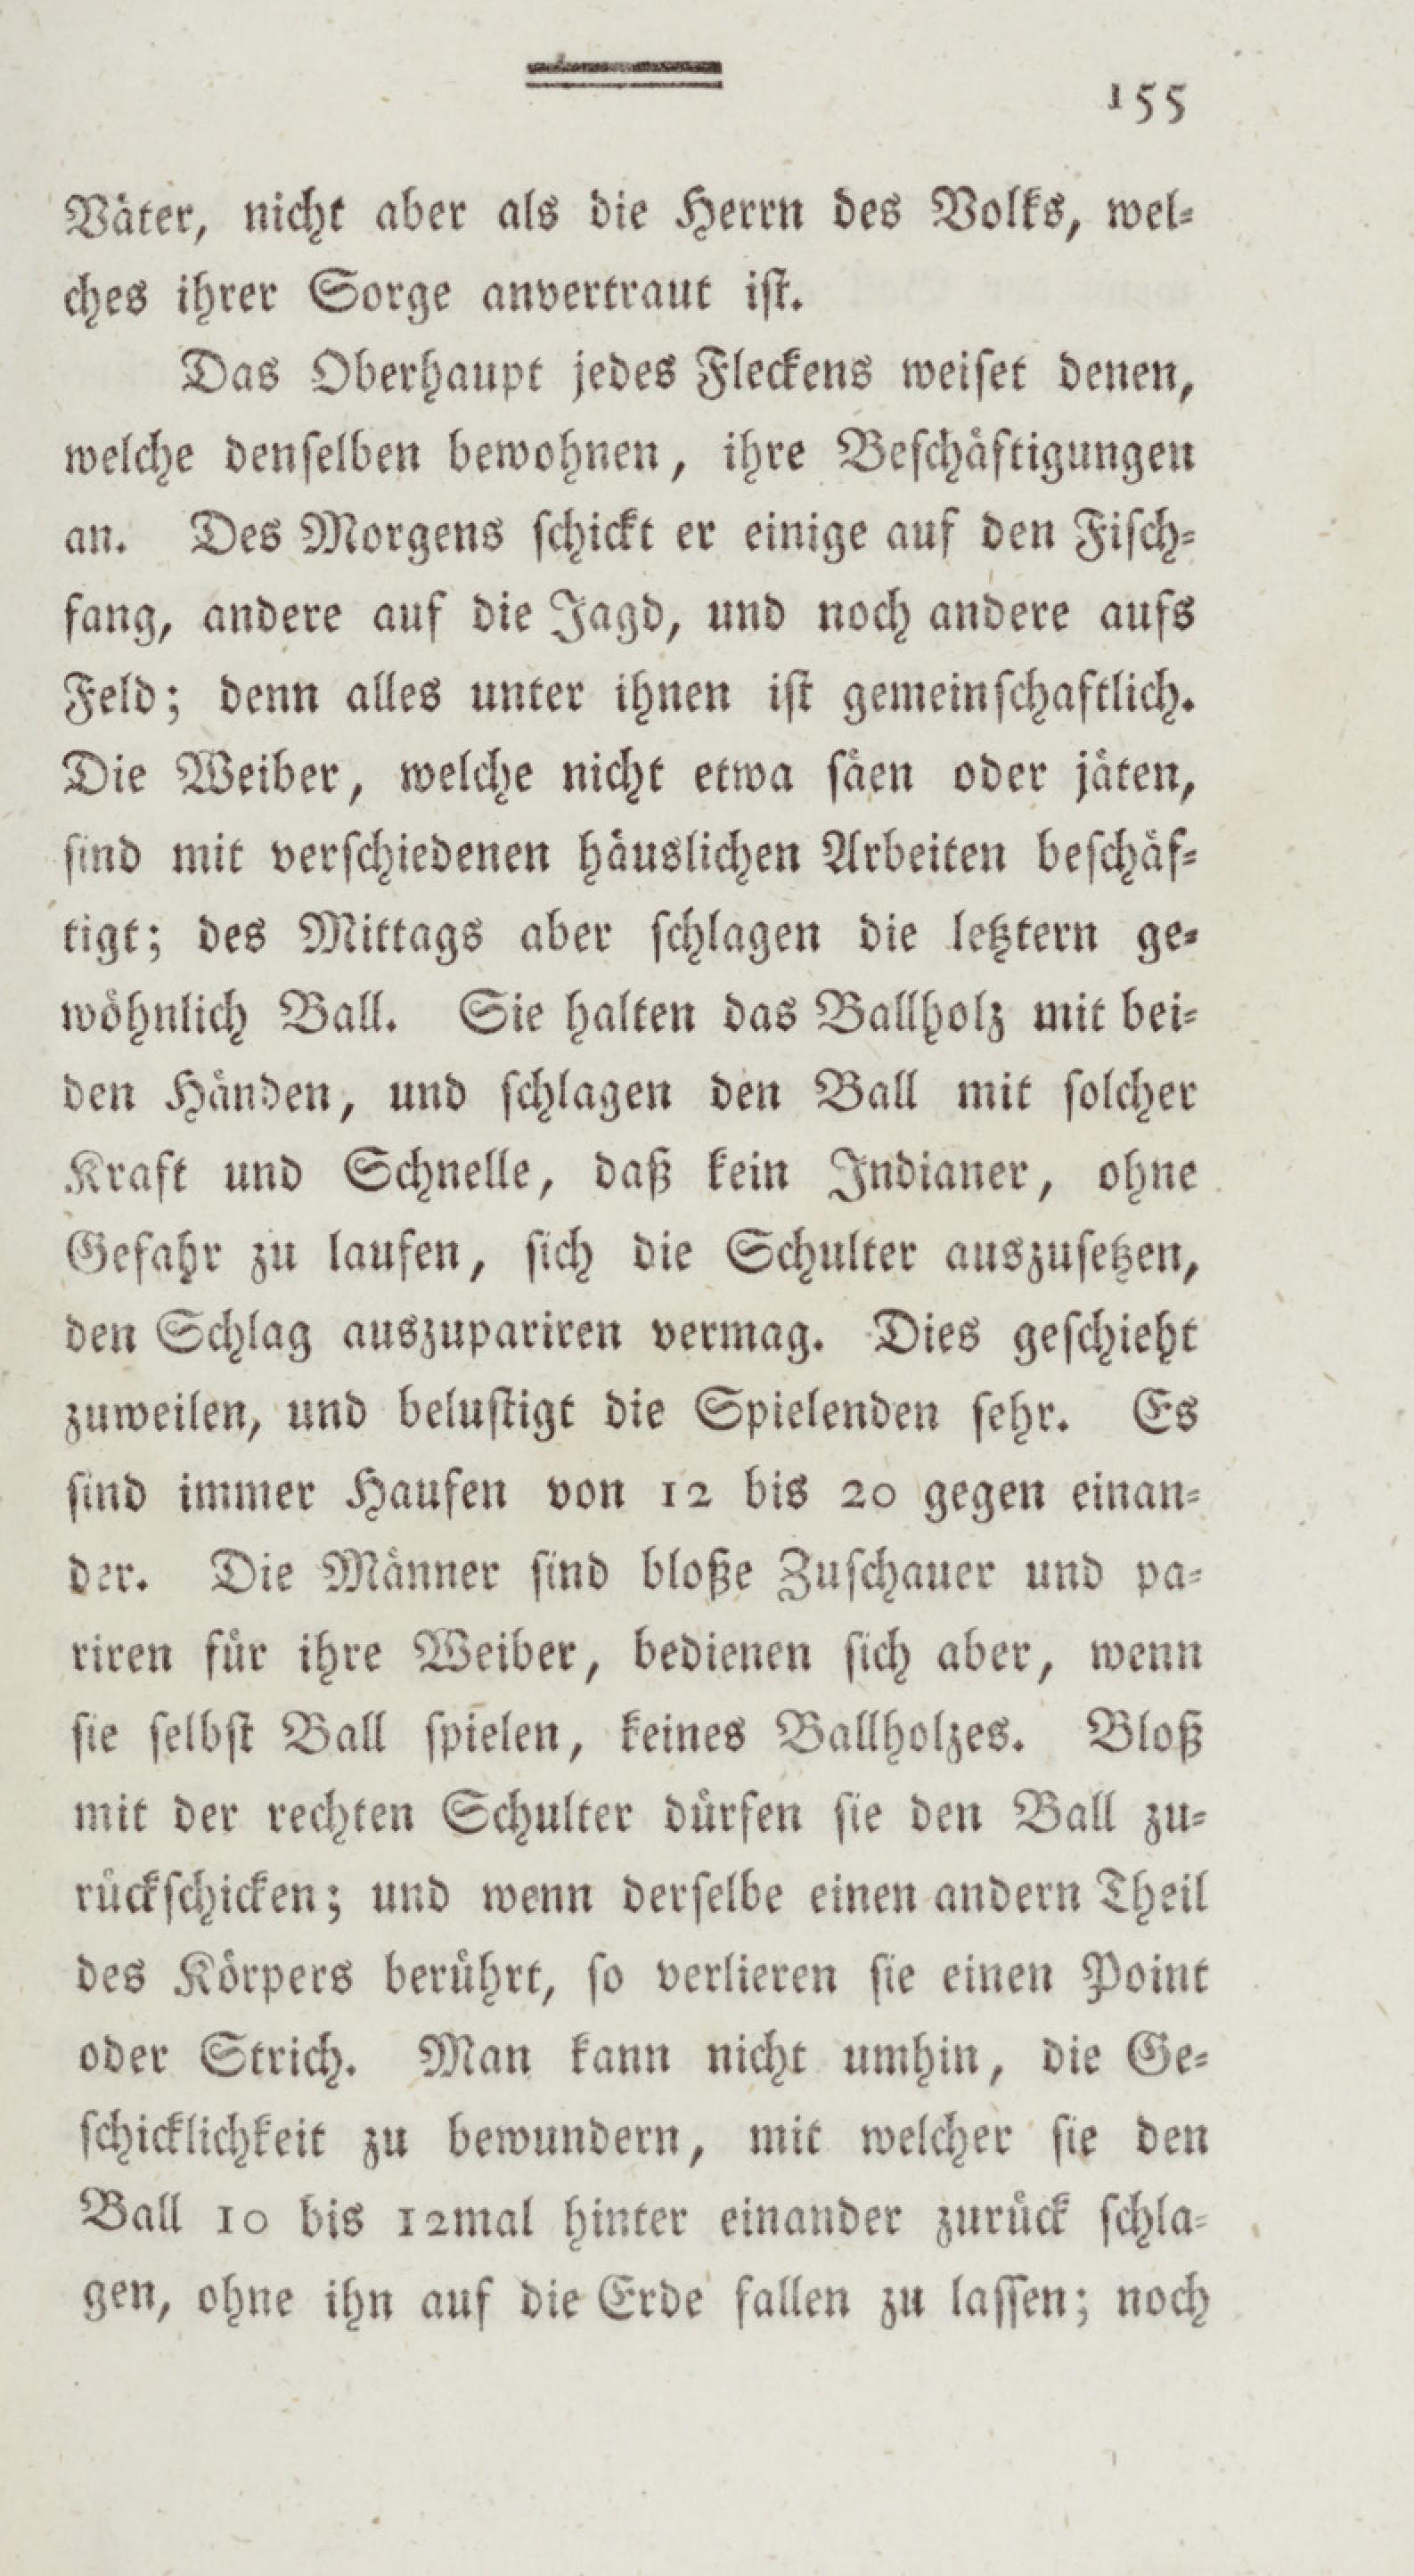 155
Väter, nicht aber als die Herrn des Volks, wel-
ches ihrer Sorge anvertraut ist.
Das Oberhaupt jedes Fleckens weiset denen,
welche denselben bewohnen, ihre Beschäftigungen
an. Des Morgens schickt er einige auf den Fisch-
fang, andere auf die Jagd, und noch andere aufs
Feld; denn alles unter ihnen ist gemeinschaftlich.
Die Weiber, welche nicht etwa säen oder jäten,
sind mit verschiedenen häuslichen Arbeiten beschäf-
tigt; des Mittags aber schlagen die letztern ge-
wöhnlich Ball. Sie halten das Ballholz mit bei-
den Händen, und schlagen den Ball mit solcher
Kraft und Schnelle, daß kein Indianer, ohne
Gefahr zu laufen, sich die Schulter auszusetzen,
den Schlag auszupariren vermag. Dies geschieht
zuweilen, und belustigt die Spielenden sehr. Es
sind immer Haufen von 12 bis 20 gegen einan-
der. Die Männer sind bloße Zuschauer und pa-
riren für ihre Weiber, bedienen sich aber, wenn
sie selbst Ball spielen, keines Ballholzes. Bloß
mit der rechten Schulter dürfen sie den Ball zu-
rückschicken; und wenn derselbe einen andern Theil
des Körpers berührt, so verlieren sie einen Point
oder Strich. Man kann nicht umhin, die Ge-
schicklichkeit zu bewundern, mit welcher sie den
Ball 10 bis 12mal hinter einander zurück schla-
gen, ohne ihn auf die Erde fallen zu lassen; noch